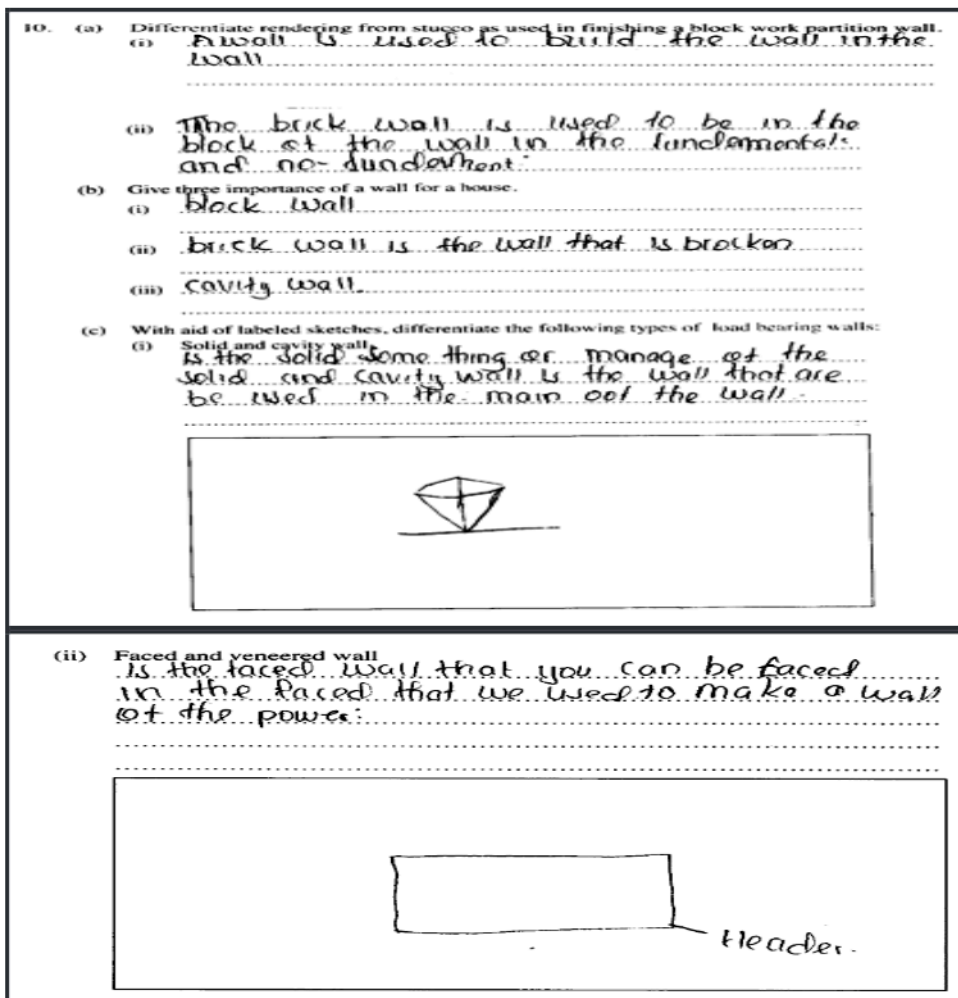 10. (a) Differentiate rendering from stucco as used in finishing a block work partition wall.
(i) A wall is used to build the wall in the
wall
(ii) The brick wall is used to be in the
block of the wall in the fundemental:
and no- fundement:
(b) Give three importance of a wall for a house.
(i) block wall
(ii) brick wall is the wall that is brocken
(iii) cavity wall.
(c) With aid of labeled sketches, differentiate the following types of load bearing walls:
(i) Solid and cavity wall
is the solid some thing or manage of the
solid and cavity wall is the wall that are
be used in the main oof the wall.
(ii) Faced and veneered wall
is the faced wall that you can be faced
in the faced that we used to make a wall
of the power:
Header.